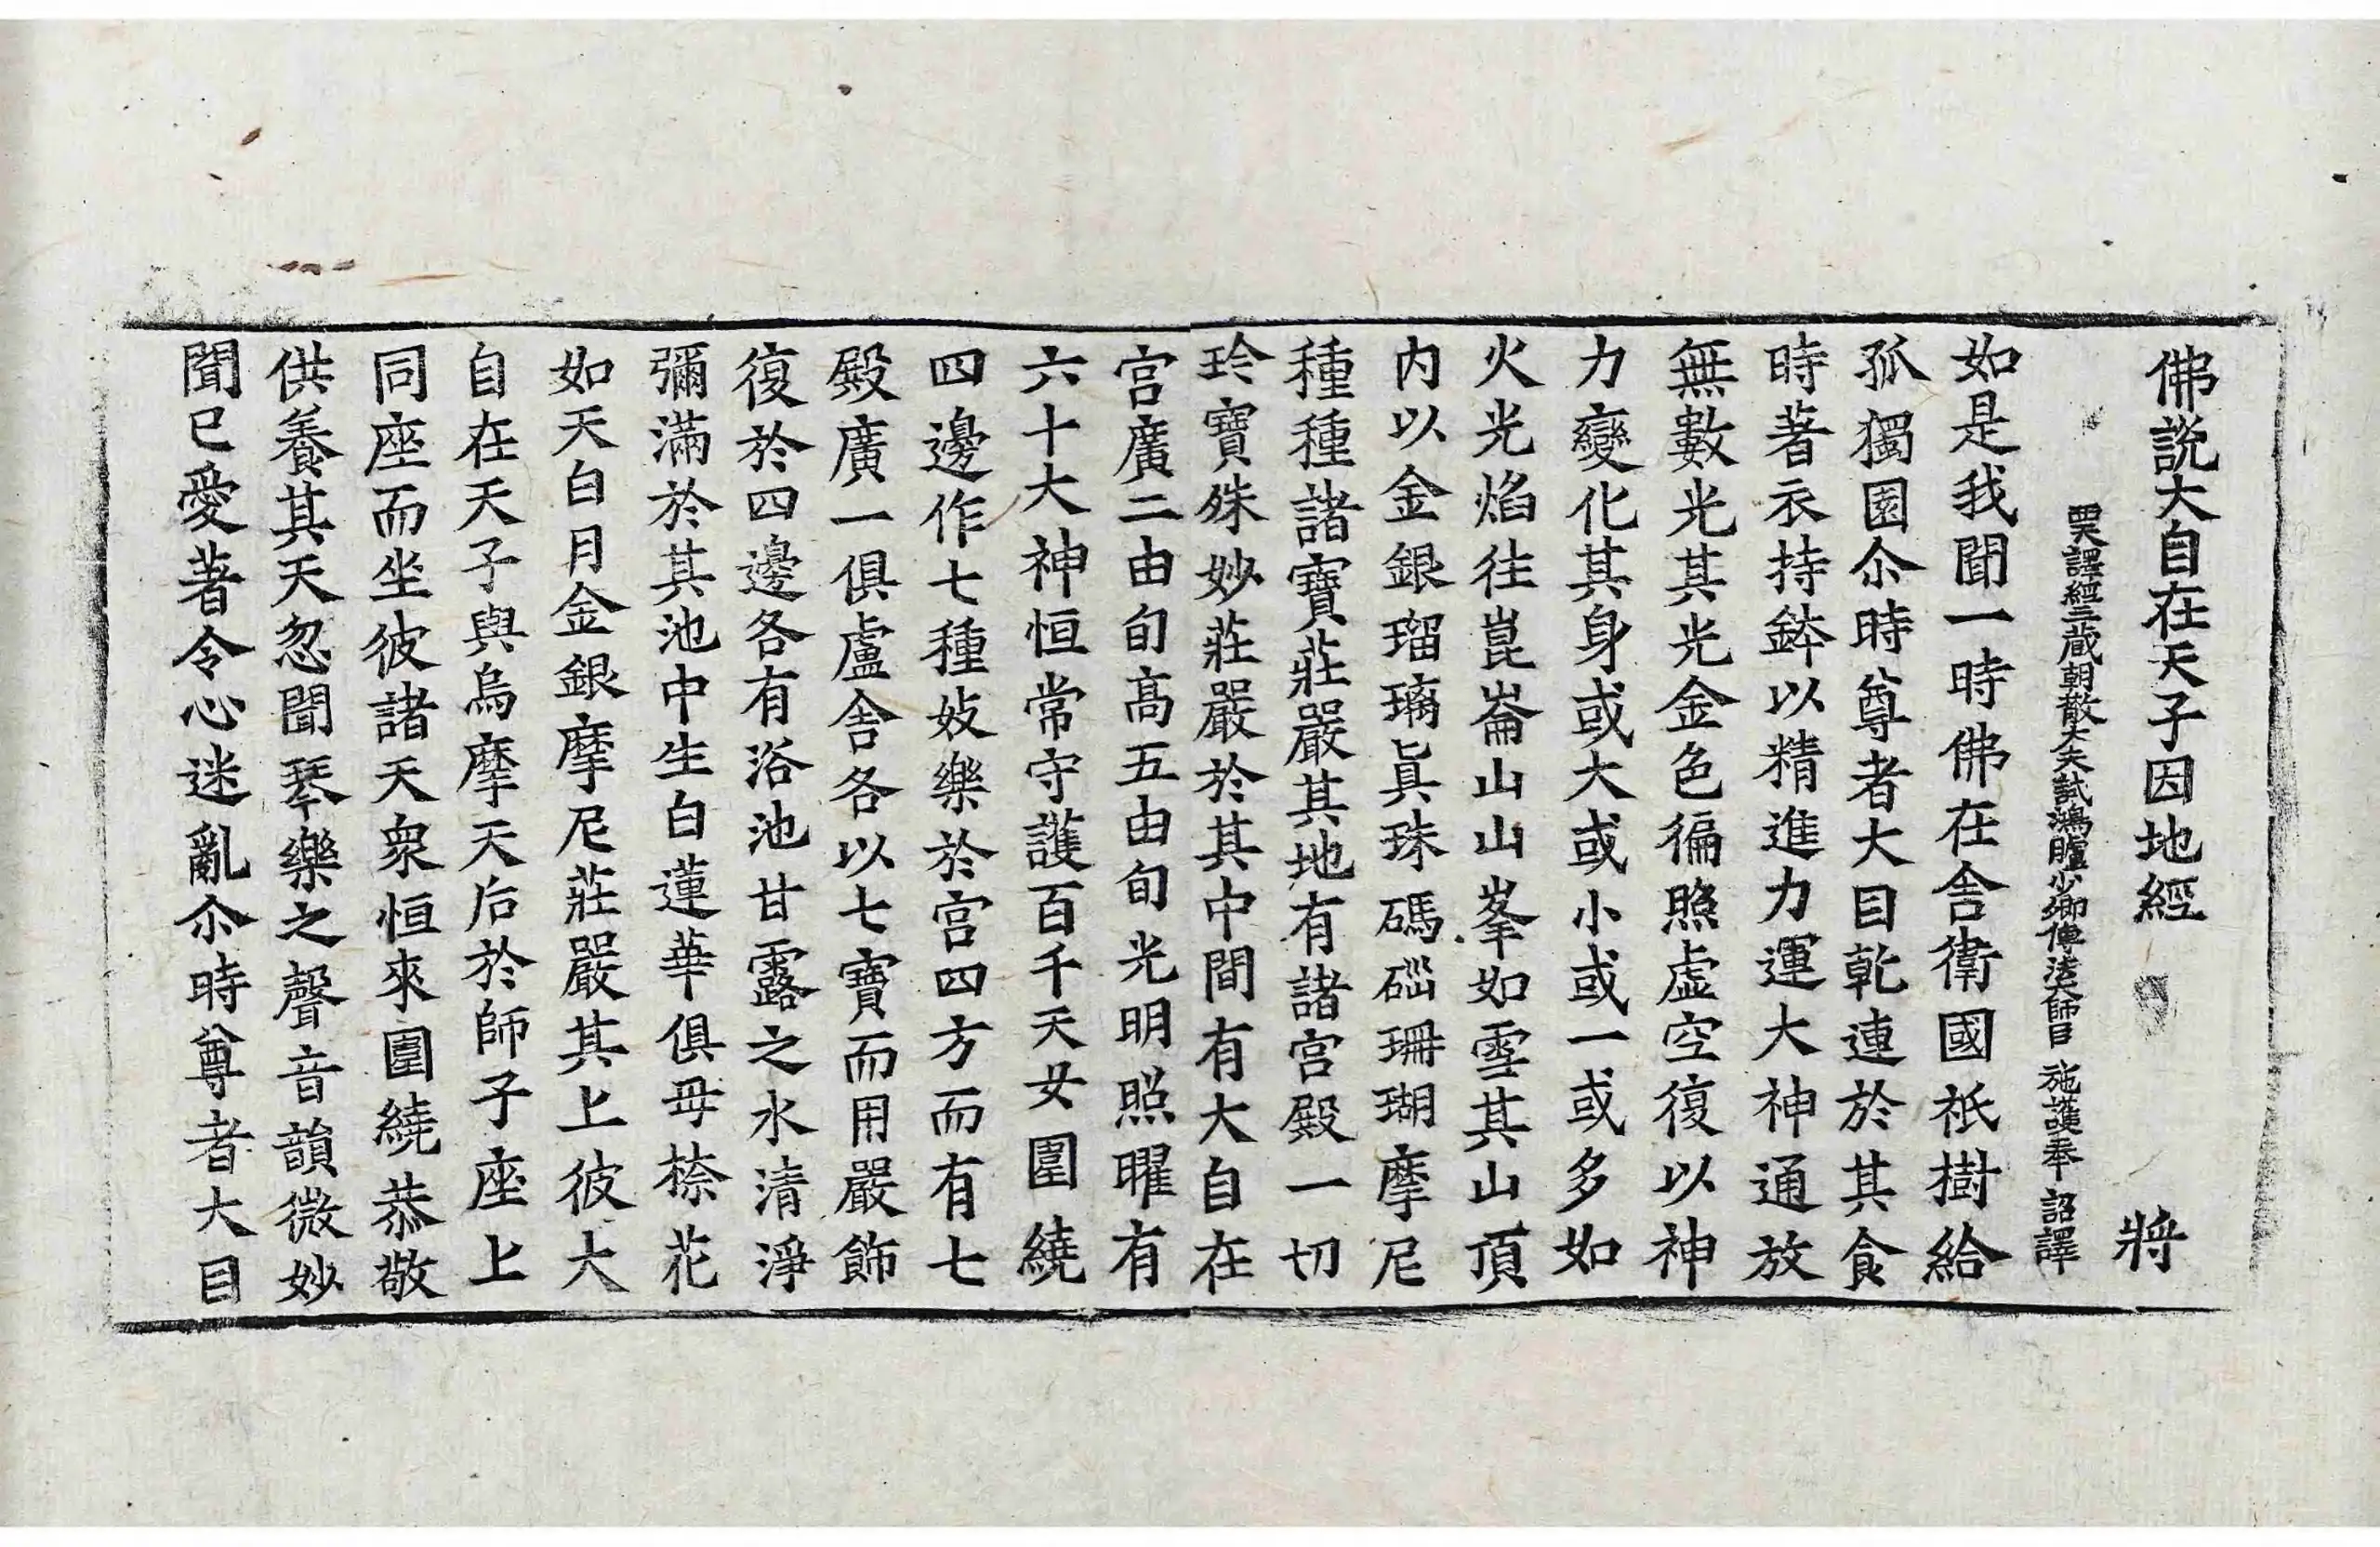 佛說大自在天子因地經 將
西天譯經三藏朝散大夫試鴻臚少卿傳法大師臣 施護奉 詔譯
如是我聞一時佛在舍衛國祇樹給
孤獨園尒時尊者大目乾連於其食
時著衣持鉢以精進力運大神通放
無數光其光金色徧照虛空復以神
力變化其身或大或小或一或多如
火光焰往崑崙山山峯如雪其山頂
內以金銀瑠璃眞珠碼碯珊瑚摩尼
種種諸寶莊嚴其地有諸宮殿一切
玲寶殊妙莊嚴於其中間有大自在
宮廣二由旬高五由旬光明照曜有
六十大神恒常守護百千天女圍繞
四邊作七種妓樂於宮四方而有七
殿廣一俱盧舍各以七寶而用嚴飾
復於四邊各有浴池甘露之水清淨
彌滿於其池中生白蓮華俱毋捺花
如天白月金銀摩尼莊嚴其上彼大
自在天子與烏摩天后於師子座上
同座而坐彼諸天衆恒來圍繞恭敬
供養其天忽聞琴樂之聲音韻微妙
聞已愛著令心迷亂尒時尊者大目